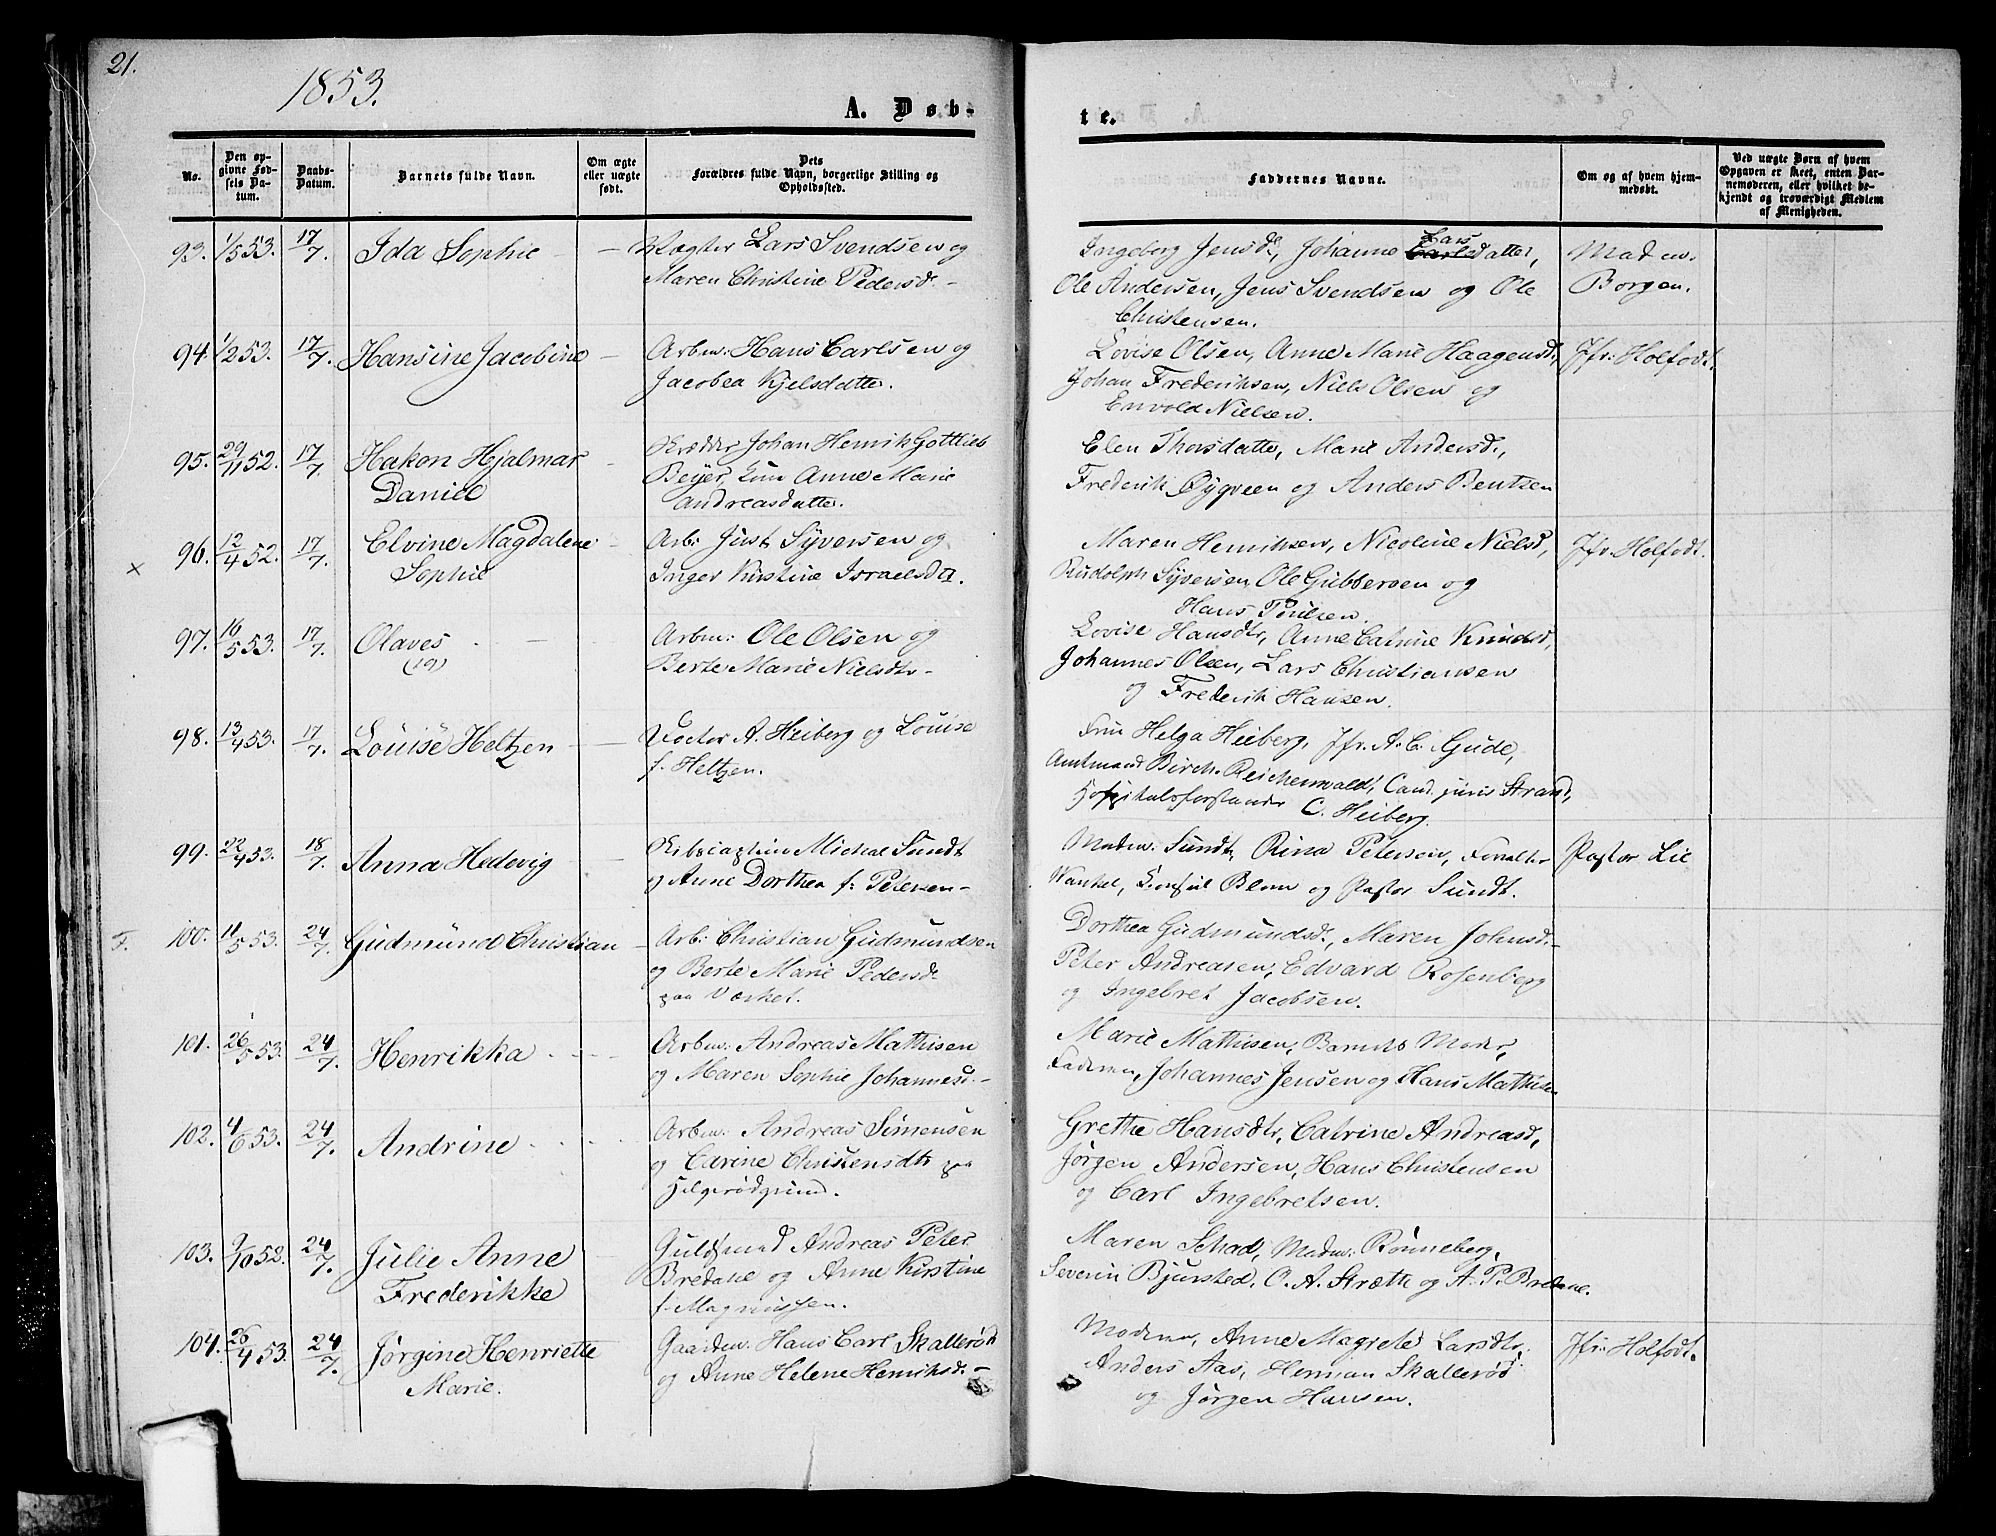 21.
1853.
A. Døb-
te.
No.
Den op-
givne Fød-
sels Da-
tum.
Daabs-
Datum.
Barnets fulde Navn.
Om ægte
eller uægte
født.
Dets
Forældres fulde Navn, borgerlige Stilling og
Opholdssted.
Faddernes Navne.
Om og af hvem hjem-
medøbt.
Ved uægte Børn af hvem
Opgaven er skeet, enten Bar-
nemoderen, eller hvilket be-
kjendt og troværdigt Medlem
af Menigheden.
93. 1/5 53. 17/7. Ida Sophie — — Vægter Lars Svendsen og
Maren Christine Pedersd. -
Ingeborg Jensd., Johanne Carlsdatter,
Lars
Ole Andersen, Jens Svendsen og Ole
Christensen.
Madm.
Borgen.
94. 1/2 53. 17/7. Hansine Jacobine — Arbm: Hans Carlsen og
Jacobea Kjelsdatter.
Lovise Olsen, Anne Marie Haagensd.,
Johan Frederiksen, Niels Olsen og
Envold Nielsen.
Jfr. Holfodt.
95. 29/11 52. 17/7. Hakon Hjalmar
Daniel
Skrædder Johan Henrik Gottlieb
Beyer, Anne Marie
Andreasdatter.
Elen Thorsdatter, Marie Andersd.,
Frederik Øygveen og Anders Bentzen
96. 12/4 52. 17/7. Elvine Magdalene
Sophie
x
Arb: Just Syversen og
Inger Kirstine Israelsdtt.
Maren Henriksen, Nicoline Nielsd,
Rudolph Syversen, Ole Gubberøen og
Hans Poulsen.
Jfr. Holfodt.
97. 16/5 53. 17/7. Olaves
(19)
Arbm: Ole Olsen og
Berte Marie Nielsdtr -
Lovise Hansdtr, Anne Catrine Knudsd,
Johannes Olsen, Lars Christiansen
og Frederik Hansen.
98. 13/4 53. 17/7. Louise Heltzen — — Doctor A. Heiberg og Louise
f. Heltzen.
Fru Helga Heiberg, Jfr. A. C. Gude,
Amtmand Birch-Reichenwald, Cand. juris Strand,
Hospitalsforstander C. Heiberg.
99. 22/4 53. 18/7. Anna Hedevig — Skibscaptein Michael Sundt
og Anne Dorthea f. Petersen -
Madm: Sundt, Rina Petersen, Forvalter
Wankel, Consul Blom og Pastor Sundt.
Pastor Lie
F. 100. 11/5 53. 24/7. Gudmund Christian — Arb: Christian Gudmundsen
og Berte Marie Pedersd.
paa Værket.
Dorthea Gudmundsd., Maren Johnsd. -
Peter Andreasen, Edvard Rosenberg
og Ingebret Jacobsen.
101. 26/5 53. 24/7. Henrikka - - - - Arbm: Andreas Mathisen
og Maren Sophie Johannesd. -
Marie Mathisen, Barnets Moder,
Faderen, Johannes Jensen og Hans Mathisen
102. 4/6 53. 24/7. Andrine - - - - Arbm: Andreas Simensen
og Carine Christensdtr paa
Helgerødgrund.
Grethe Hansdtr, Catrine Andreasd,
Jørgen Andersen, Hans Christensen
og Carl Ingebretsen.
103. 9/10 52. 24/7. Julie Anne
Frederikke
Guldsmed Andreas Peter
Bredane og Anne Kirstine
f. Magnussen.
Maren Schad, Madm: Rønneberg,
Severin Bjursted, O. A. Stræth og A. P. Bredane.
104. 26/4 53. 24/7. Jørgine Henriette
Marie.
Gaardm: Hans Carl Skallerød
og Anne Helene Henriksd. -
Moderen, Anne Magrete Larsdtr,
Anders Aas, Herman Skallerød
og Jørgen Hansen.
Jfr. Holfodt.